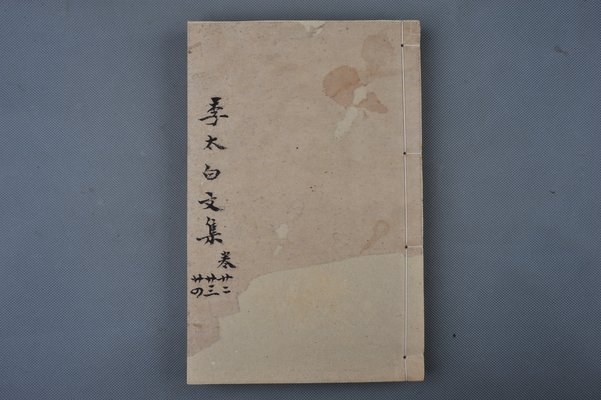 李太白文集
卷廿二
廿三
廿四